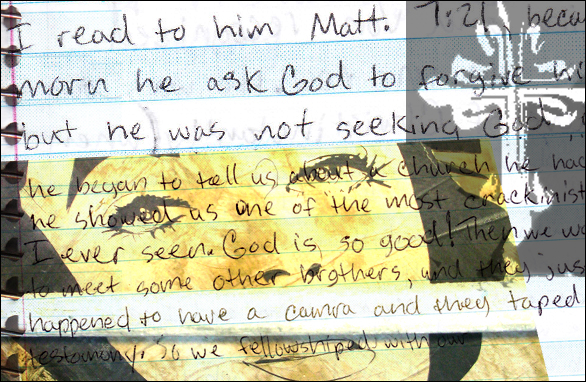 I read to him Matt. 7:21, beca
morn he ask God to forgive hi
but he was not seeking God,
he began to tell us about a church he had
he showed us one of the most crackinist
I ever seen. God is so good! Then we w
to meet some other brothers, and they jus
happened to have a camra and they taped
testamony. So we fellowshiped with our